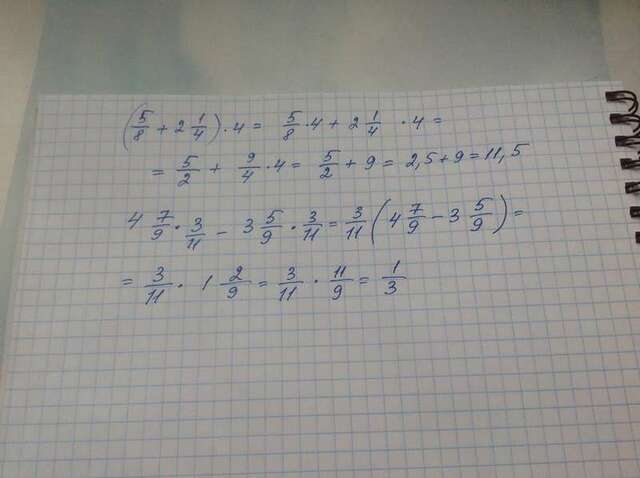 (5/8 + 2 1/4) · 4 = 5/8 · 4 + 2 1/4 · 4 =
= 5/2 + 9/4 · 4 = 5/2 + 9 = 2,5 + 9 = 11,5
4 7/9 · 3/11 - 3 5/9 · 3/11 = 3/11 (4 7/9 - 3 5/9) =
= 3/11 · 1 2/9 = 3/11 · 11/9 = 1/3